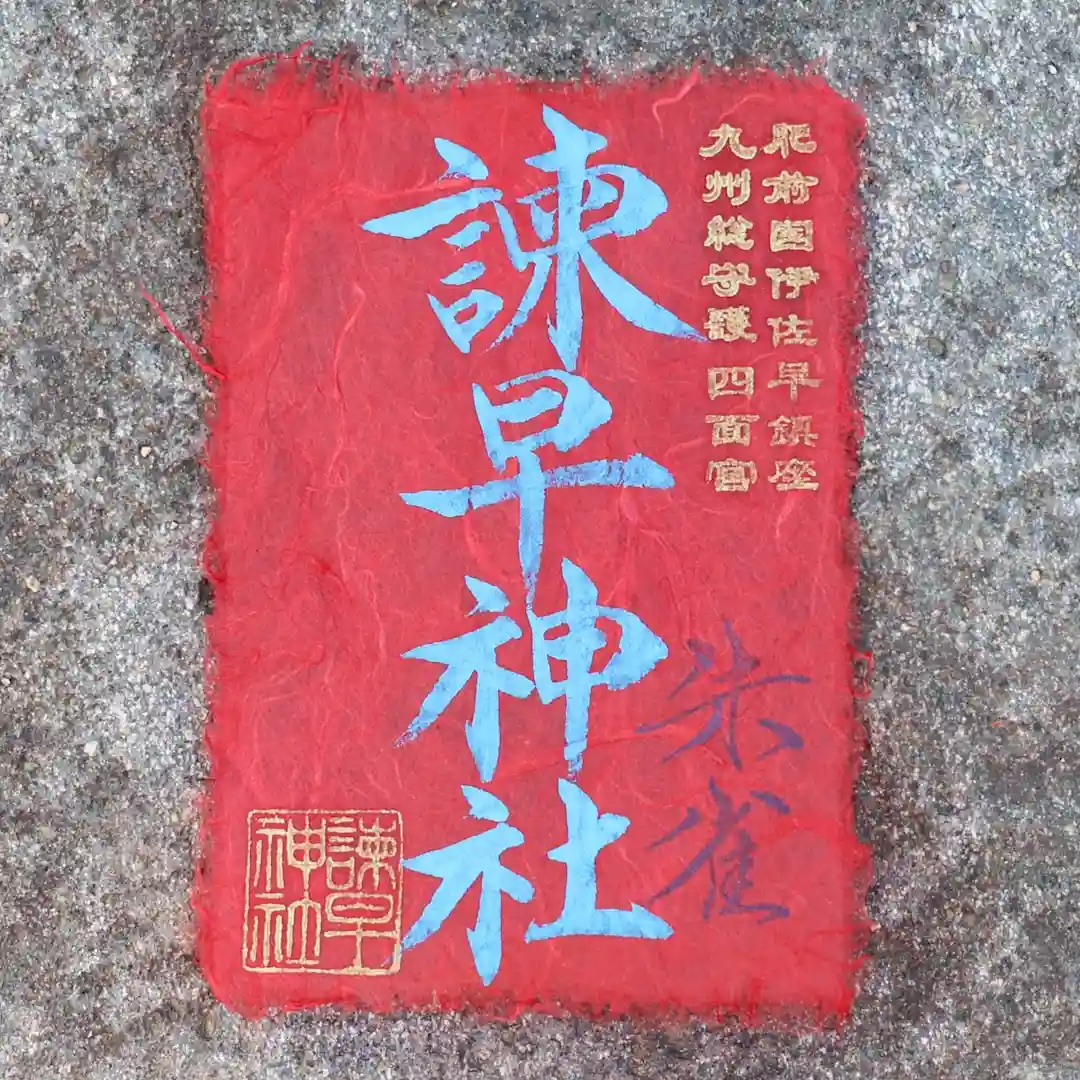 肥前国伊佐早鎮座
九州総守護 四面宮
諫早神社
朱雀
諫早
神社